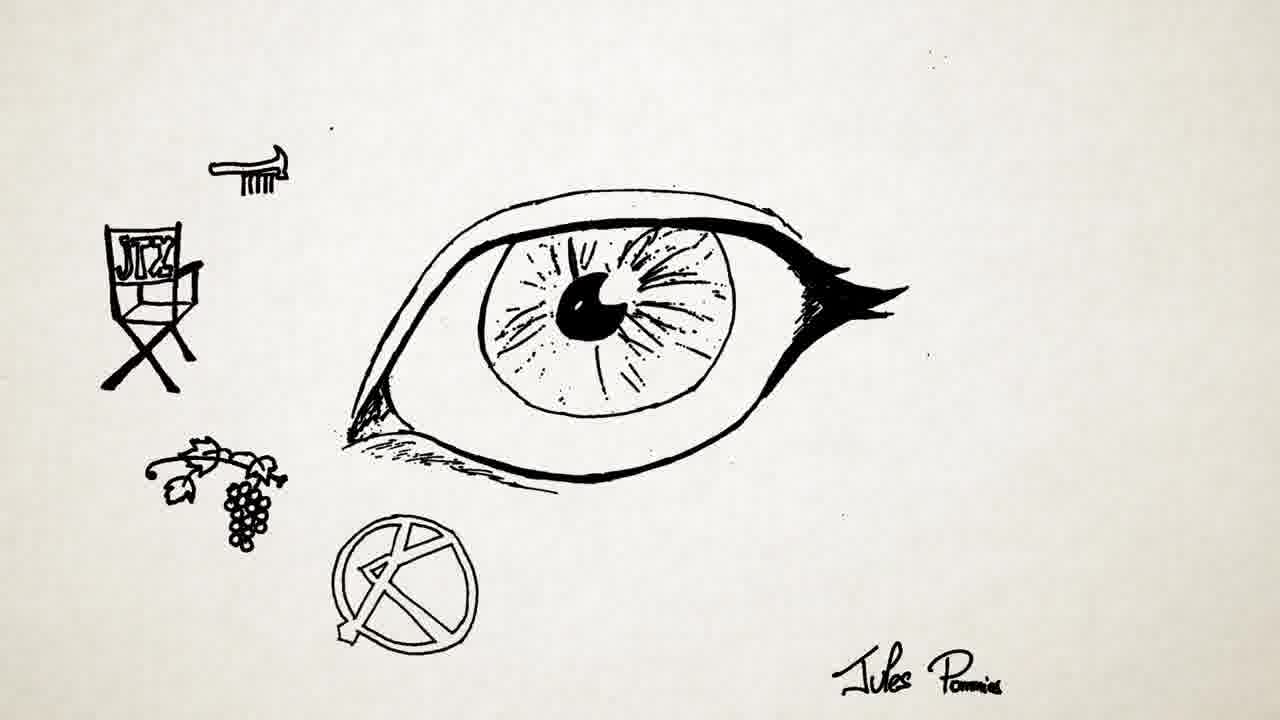 JTX
Jules Pommies